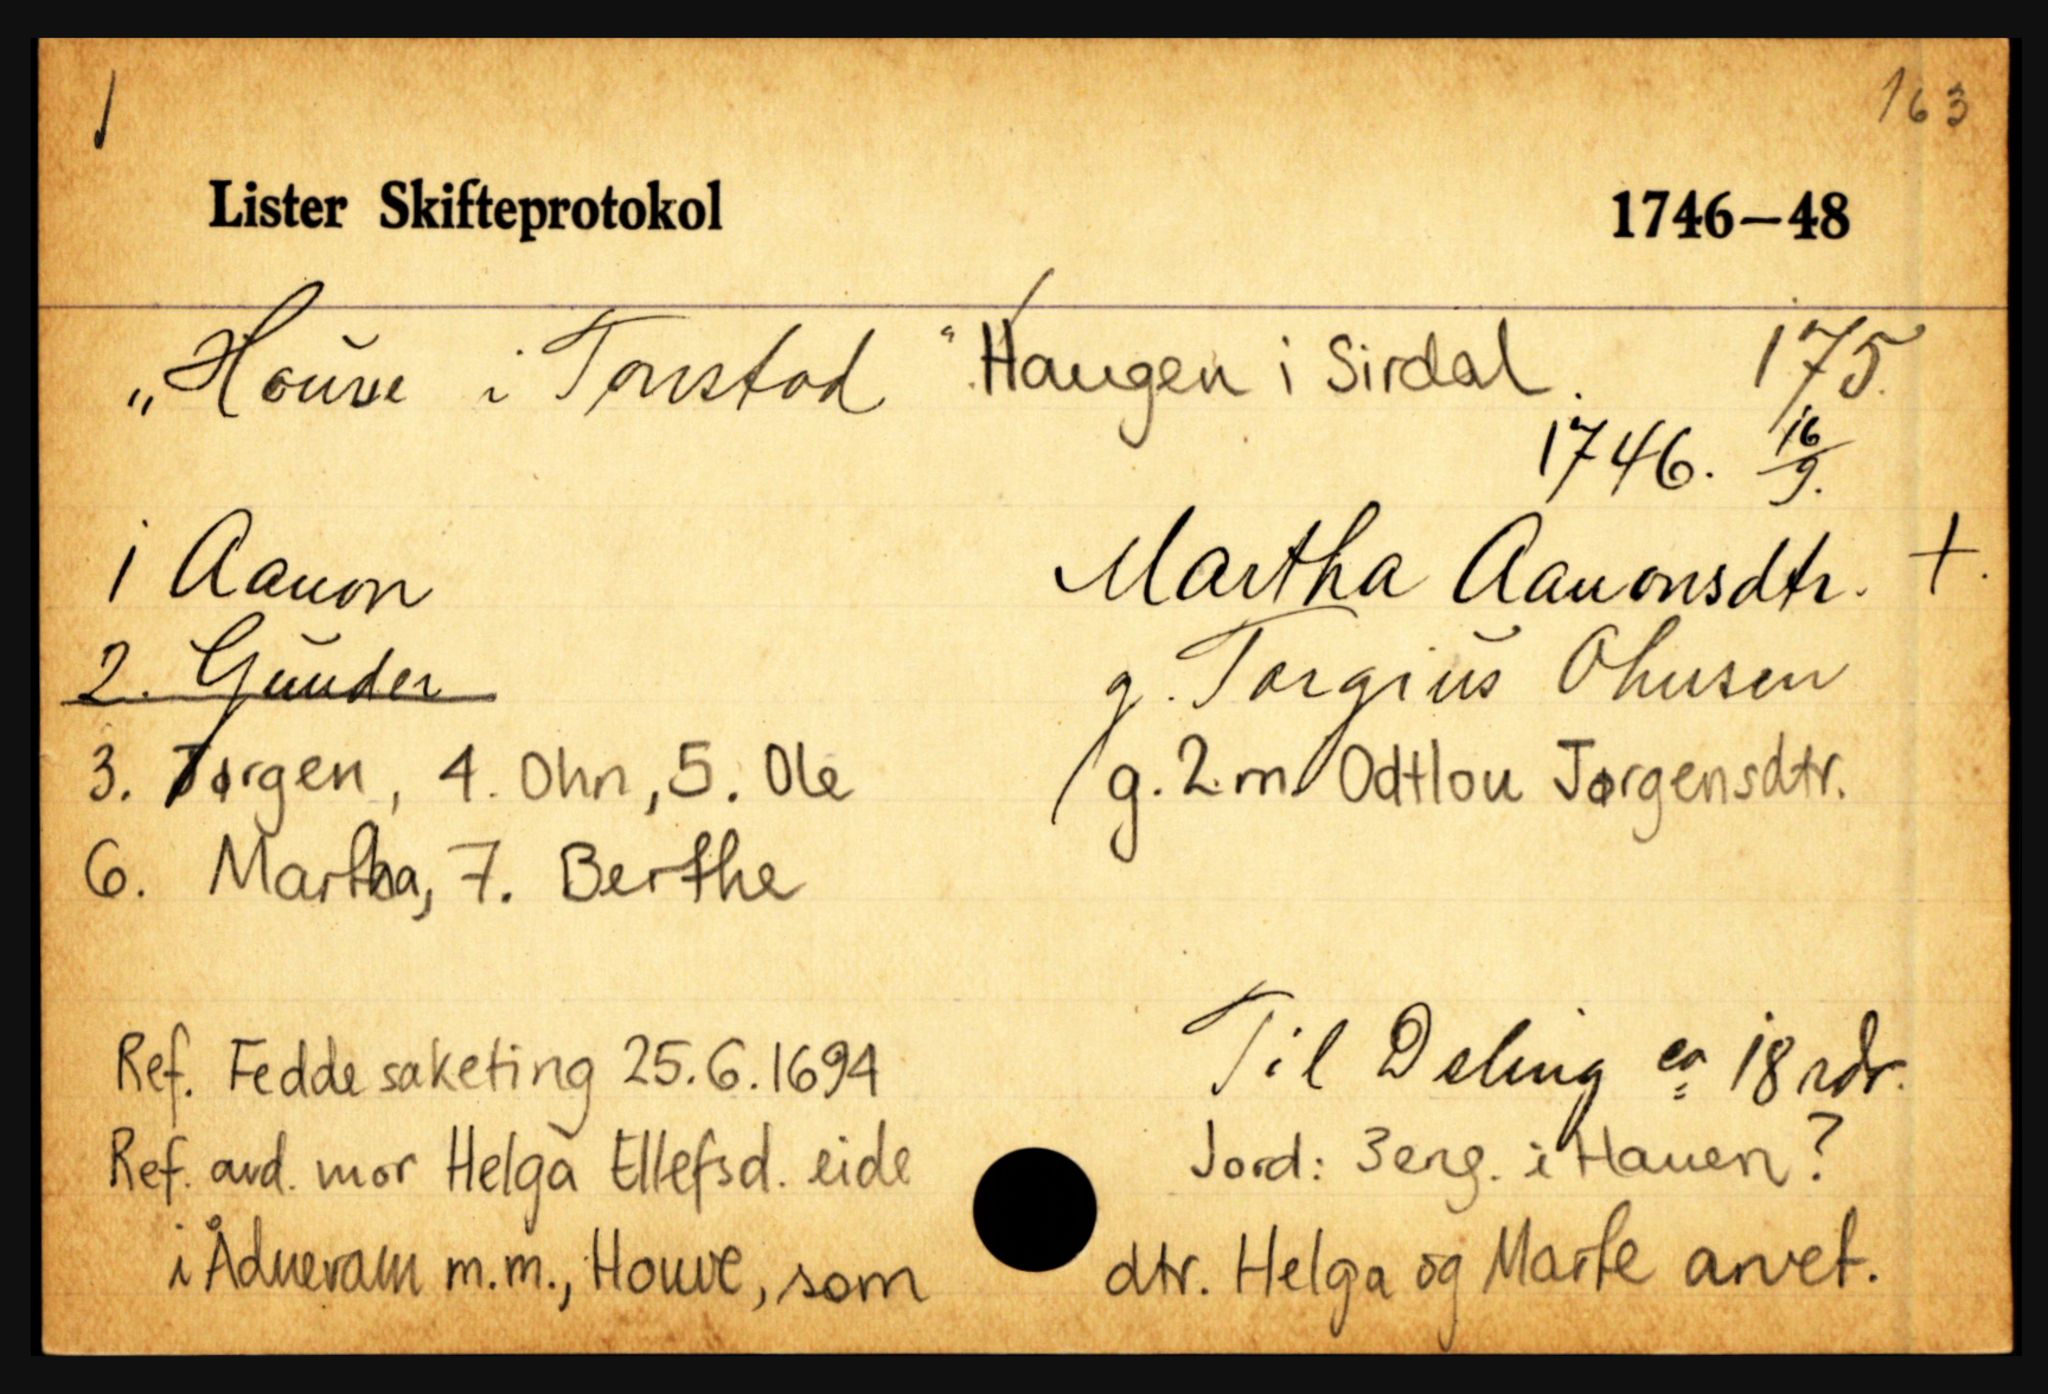 163
Lister Skifteprotokol 1746–48
„Houve i Tonstad “ Haugen i Sirdal. 175.
1746. 16/9.
1 Aanon Martha Aanonsdtr. +.
2. Gunder g. Torgius Ohnsen
3. Jørgen, 4. Ohn, 5. Ole g. 2.m. Odtlou Jørgensdtr.
6. Martha, 7. Berthe
Ref. Fedde saketing 25.6.1694 Til Deling ca 18 rdr.
Ref. avd. mor Helga Ellefsd. eide Jord: 3 eng. i Hauen?
i Ådneram m.m., Houve, som dtr. Helga og Marte arvet.